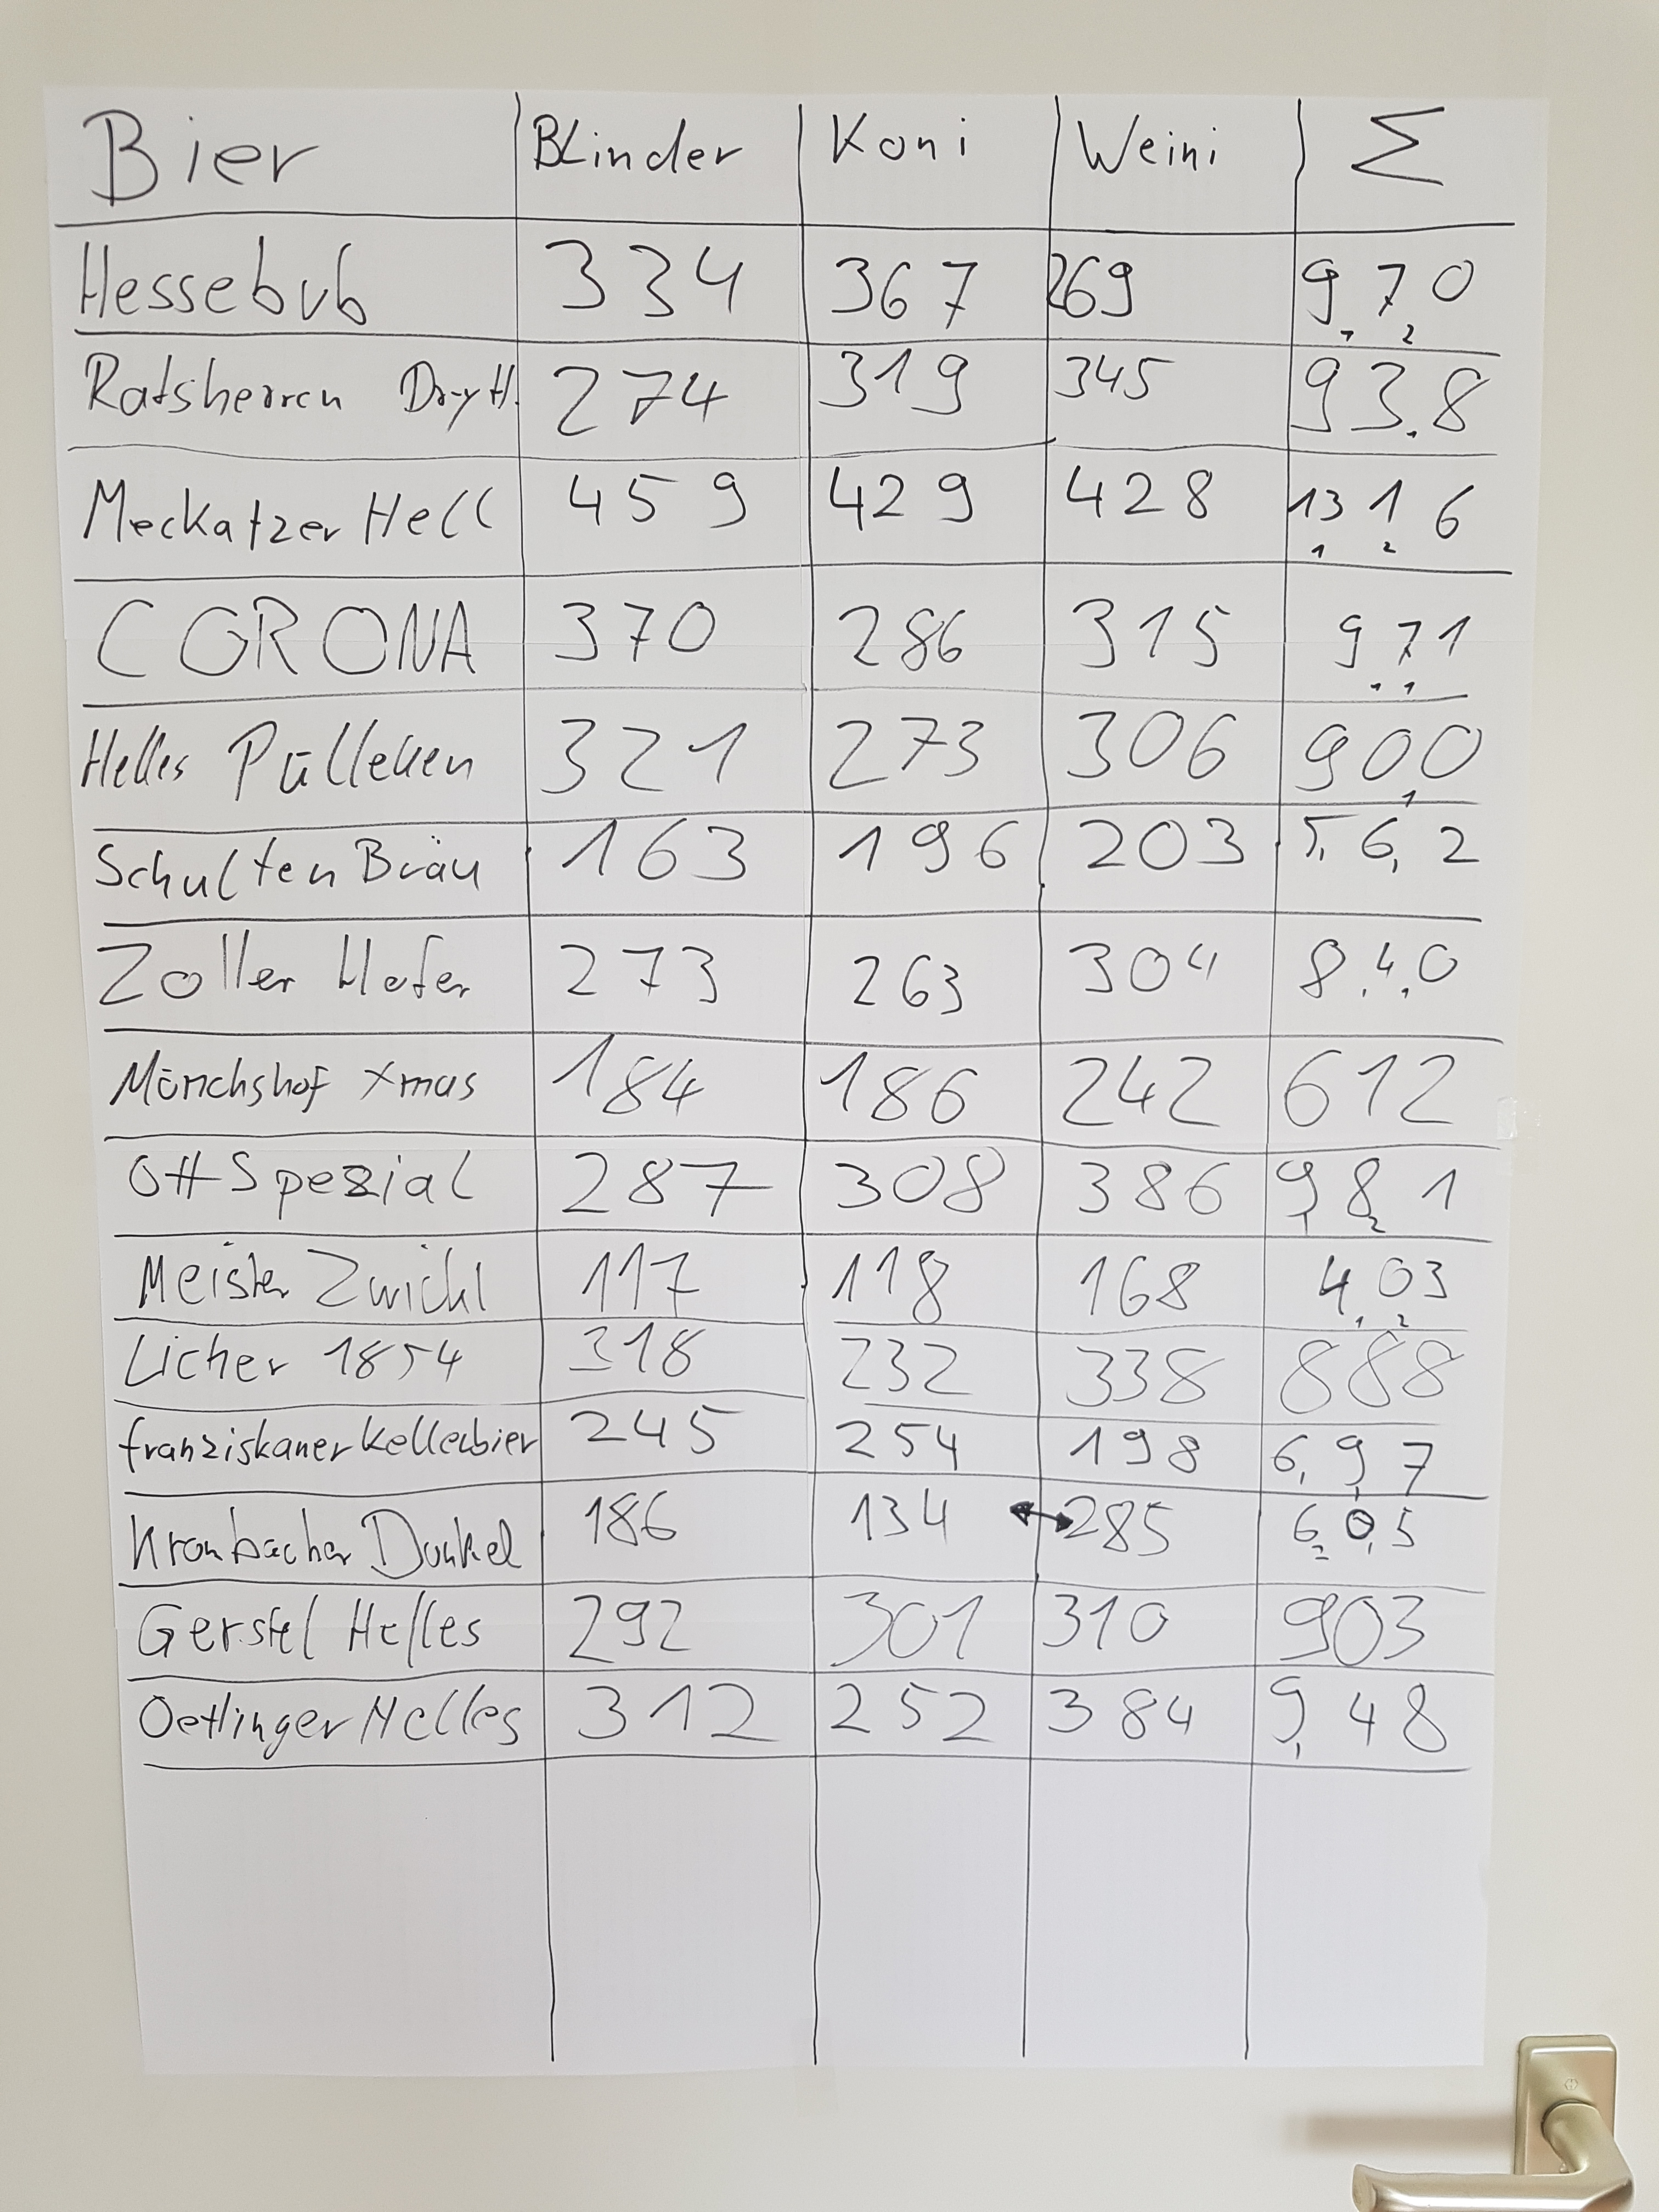 Bier BLinder Koni Weini Σ
Hessebub 334 367 269 970
Ratsherren Dry H. 274 319 345 938
Meckatzer Hell 459 429 428 1316
CORONA 370 286 315 971
Helles Pülleken 321 273 306 900
Schulten Bräu 163 196 203 562
Zoller Hofer 273 263 304 840
Mönchshof Xmas 184 186 242 612
Ott Spezial 287 308 386 981
Meister Zwickl 117 118 168 403
Licher 1854 318 232 338 888
franziskaner Kellerbier 245 254 198 697
Krombacher Dunkel 186 134 ↔ 285 605
Gerstel Helles 292 301 310 903
Oettinger Helles 312 252 384 948